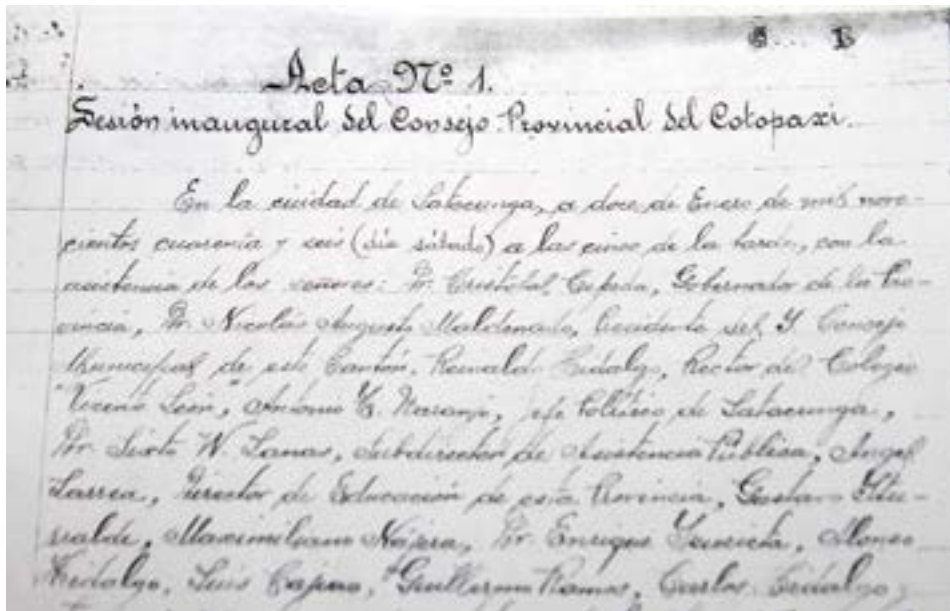 Acta Nº 1.
Sesión inaugural del Consejo Provincial del Cotopaxi.
En la ciudad de Latacunga, a doce de Enero de mil nove-
cientos cuarenta y seis (día sábado) a las cinco de la tarde, con la
asistencia de los señores: Dr. Cristóbal Cepeda, Gobernador de la Pro-
vincia, Dr. Nicolás Augusto Maldonado, Presidente del I. Concejo
Municipal de este Cantón, Reinaldo Hidalgo, Rector del Colegio
"Vicente León", Antonio E. Naranjo, Jefe Político de Latacunga,
Dr. Sixto W. Lanas, Subdirector de Asistencia Pública, Angel
Larrea, Director de Educación de esta Provincia, Gustavo Itu-
rralde, Maximiliano Nájera, Dr. Enrique Alonso
Hidalgo, Luis Guillermo Ramos, Carlos Hidalgo,